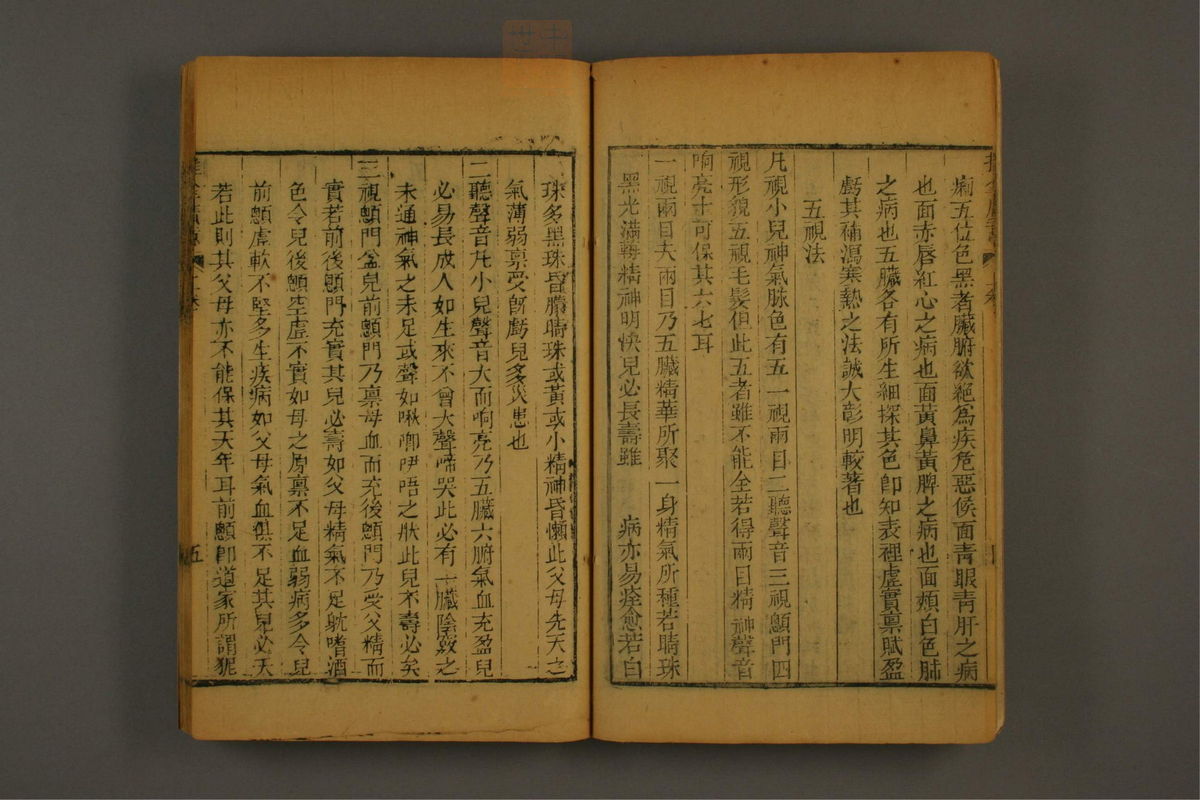 痢五位色黑者臟腑欲絕為疾危惡候面青眼青肝之病
也面赤唇紅心之病也面黃鼻黃脾之病也面頰白色肺
之病也五臟各有所生細探其色卽知表裡虛實禀賦盈
虧其補瀉寒熱之法誠大彰明較著也
五視法
凡視小兒神氣脉色有五一視兩目二聽聲音三視顖門四
視形貌五視毛髮但此五者雖不能全若得兩目精神聲音
响亮十可保其六七耳
一視兩目夫兩目乃五臟精華所聚一身精氣所種若睛珠
黑光滿輪精神明快兒必長壽雖 病亦易痊愈若白
珠多黑珠昏朦睛珠或黃或小精神昏懶此父母先天之
氣薄弱禀受旣虧兒多災患也
二聽聲音凡小兒聲音大而响亮乃五臟六腑氣血充盈兒
必易長成人如生來不曾大聲啼哭此必有一臟陰竅之
未通神氣之未足或聲如啾唧咿唔之狀此兒不壽必矣
三視顖門盆兒前顖門乃禀母血而充後顖門乃受父精而
實若前後顖門充實其兒必壽如父母精氣不足躭嗜酒
色令兒後顖空虛不實如母之原禀不足血弱病多令兒
前顖虛軟不堅多生疾病如父母氣血俱不足其兒必夭
若此則其父母亦不能保其天年耳前顖卽道家所謂狔
五